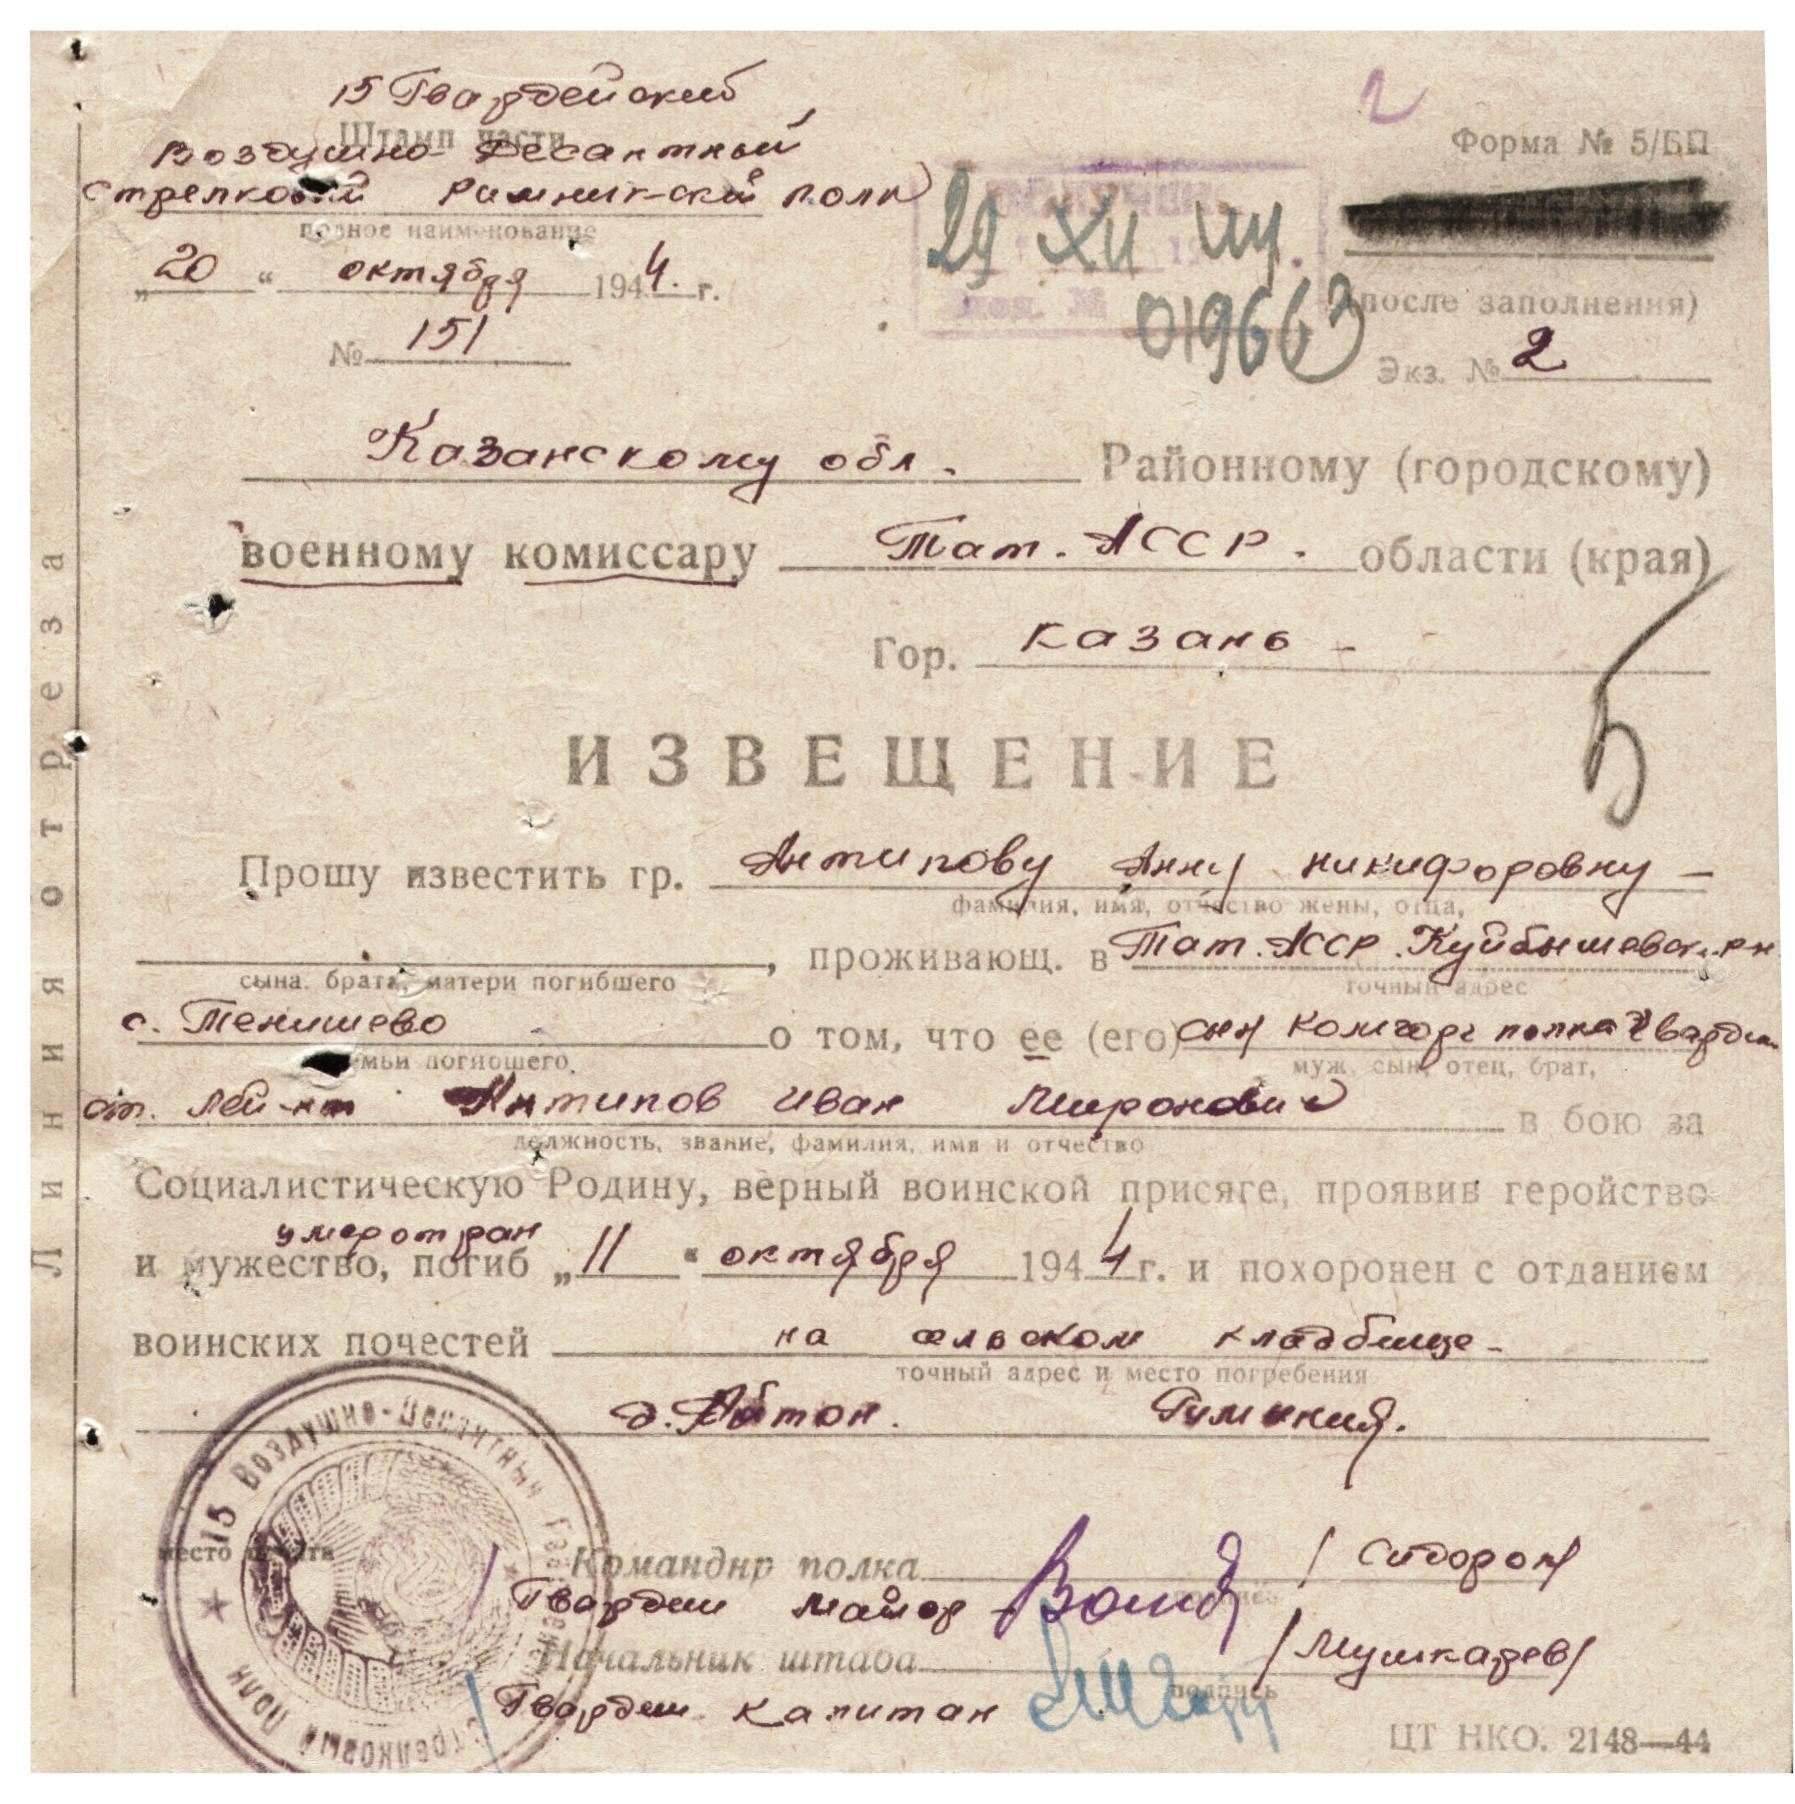 2
15 Гвардейский
Штамп части
Воздушно-Десантный
стрелковый Римник-ский полк
полное наименование
Форма № 5/БП
29 XII 44.
„20“ октября 1944. г.
019663
(после заполнения)
№ 151
Экз. № 2
Казанскому обл. Районному (городскому)
военному комиссару Тат. АССР. области (края)
Гор. Казань -
Б
ИЗВЕЩЕНИЕ
Прошу известить гр. Антипову Анну Никифоровну -
фамилия, имя, отчество жены, отца,
, проживающ. в Тат. АССР. Куйбышевск. рн.
сына, брата, матери погибшего
точный адрес
с. Тенишево о том, что ее (его) сын комсорг полка Гвардии
семьи погибшего.
муж, сын, отец, брат,
ст. лей-нт Антипов Иван Миронович в бою за
должность, звание, фамилия, имя и отчество
Социалистическую Родину, верный воинской присяге, проявив геройство
умер от ран
и мужество, погиб „11“ октября 1944 г. и похоронен с отданием
воинских почестей на сельском кладбище -
точный адрес и место погребения
д. Абтон. Румыния.
15 Воздушно-Десантный Гвардейский Стрелковый Полк
место печати
Командир полка /Сидоров/
Гвардии майор
подпись
Начальник штаба /Мушкарев/
подпись
Гвардии капитан
ЦТ НКО. 2148—44
Линия отреза